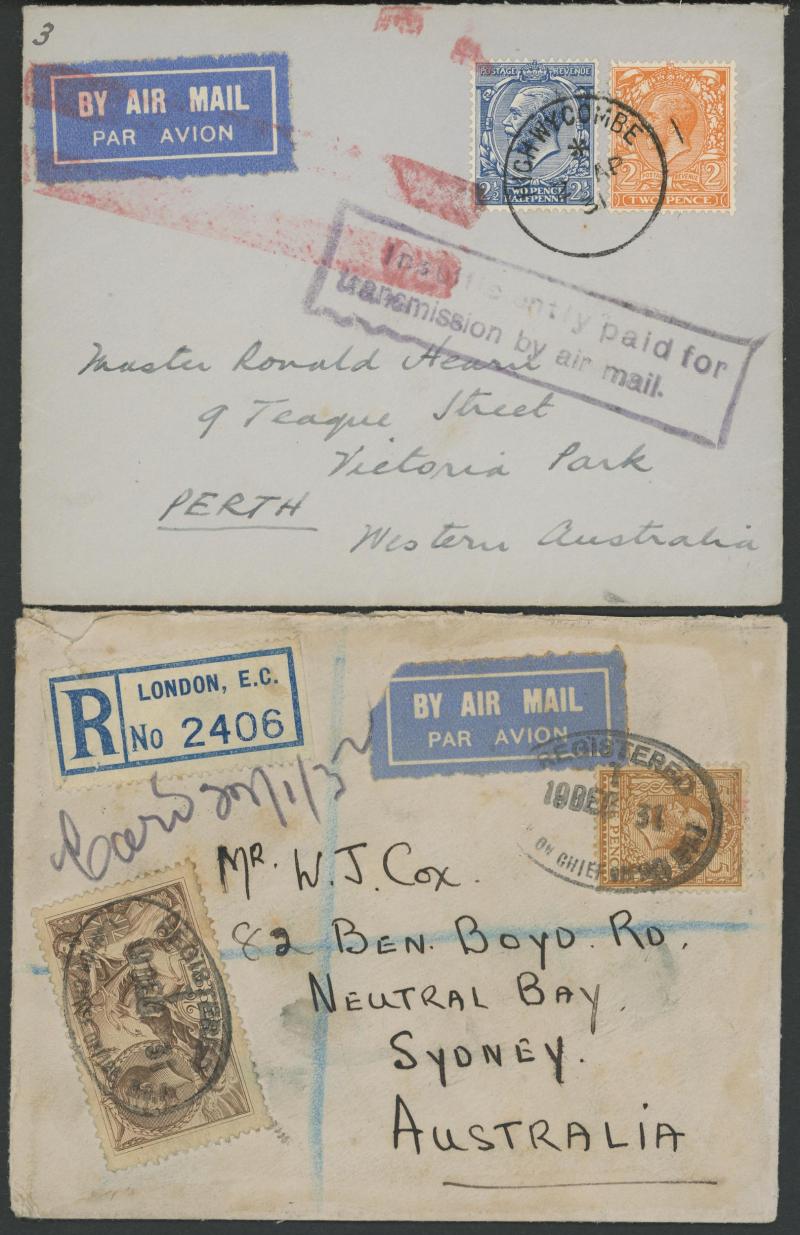 3
BY AIR MAIL
PAR AVION
POSTAGE REVENUE
2½ TWO PENCE HALFPENNY 2½
POSTAGE REVENUE
2 TWO PENCE 2
HIGH WYCOMBE
AP
31
Insufficiently paid for
transmission by air mail.
Master Ronald Hearn
9 Teague Street
Victoria Park
PERTH
Western Australia
R
LONDON, E.C.
No 2406
BY AIR MAIL
PAR AVION
REGISTERED
10 DEC 31
CHIEF
PENCE
Mr. W. J. Cox.
82 Ben. Boyd. Rd,
Neutral Bay,
Sydney.
Australia
REGISTERED
10 DEC 31